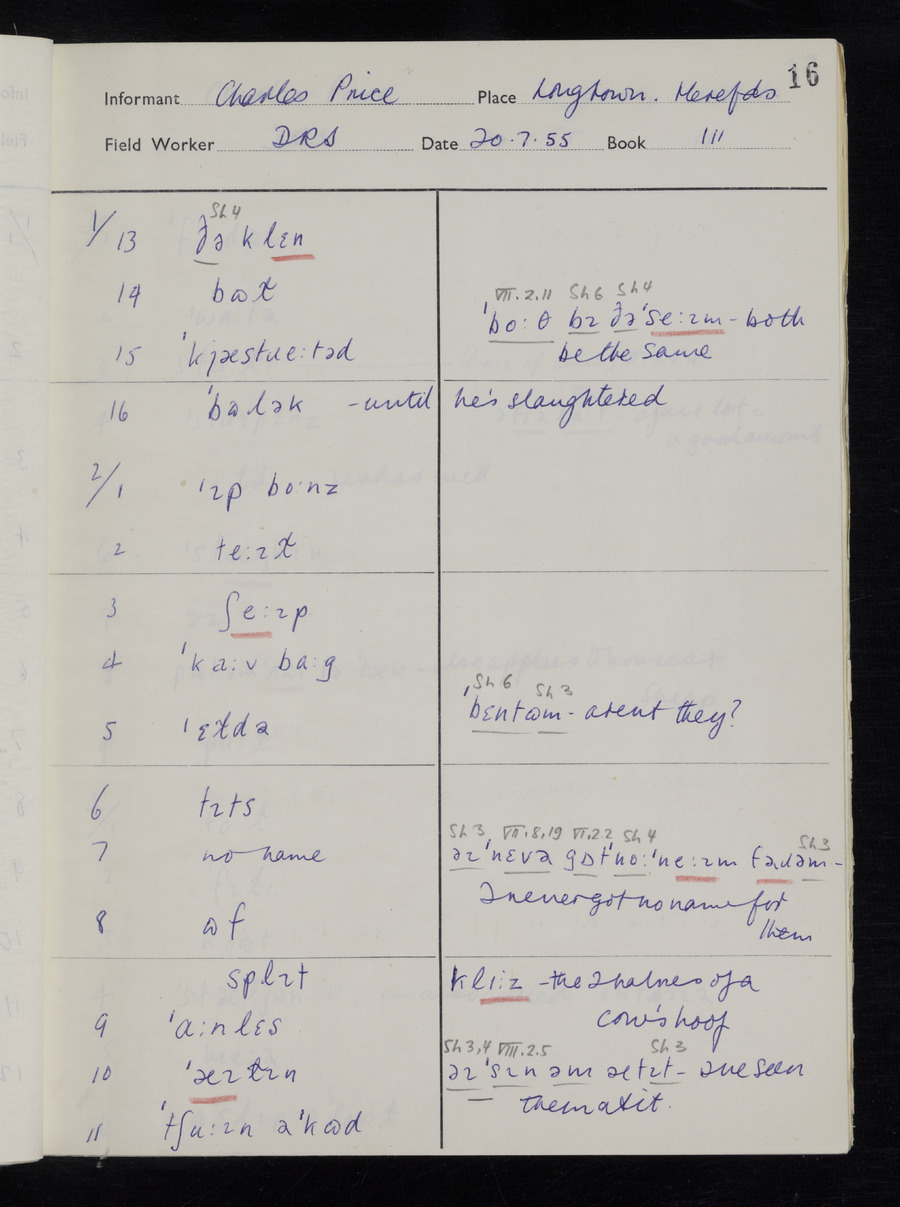 16
Informant Charles Price Place Longtown. Herefds
Field Worker DRS Date 20.7.55 Book III
Sh 4
1/13 ðə klɛn
14 bɷɫ
VII.2.11 Sh 6 Sh 4
ˈbo:θ bɪ ðəˈse:ɪm - both
be the same
15 ˈkjæstɹe:təd
16 ˈbɷlək - until he's slaughtered
2/1 ˈɪp bo:nz
2 te:ɪɫ
3 ʃe:ɪp
4 ˈka:v ba:g
Sh 6 Sh 3
5 ˈɛɫdə ˈbɛntɷm - arent they?
6 tɪts
Sh 3 VII.8.19 VI.2.2 Sh 4 Sh 3
7 no name əɪˈnɛvə gɒtˈno:ˈne:ɪm
I never got no name for
them
8 ɷf
splɪt kli:z - the 2 halves of a
cow's hoof
9 ˈa:nlɛs
Sh 3,4 VIII.2.5 Sh 3
10 ˈæɪtɪn əɪˈsɪn əm ætɪt - I've seen
them at it.
11 ˈtʃu:ɪn əˈkɷd